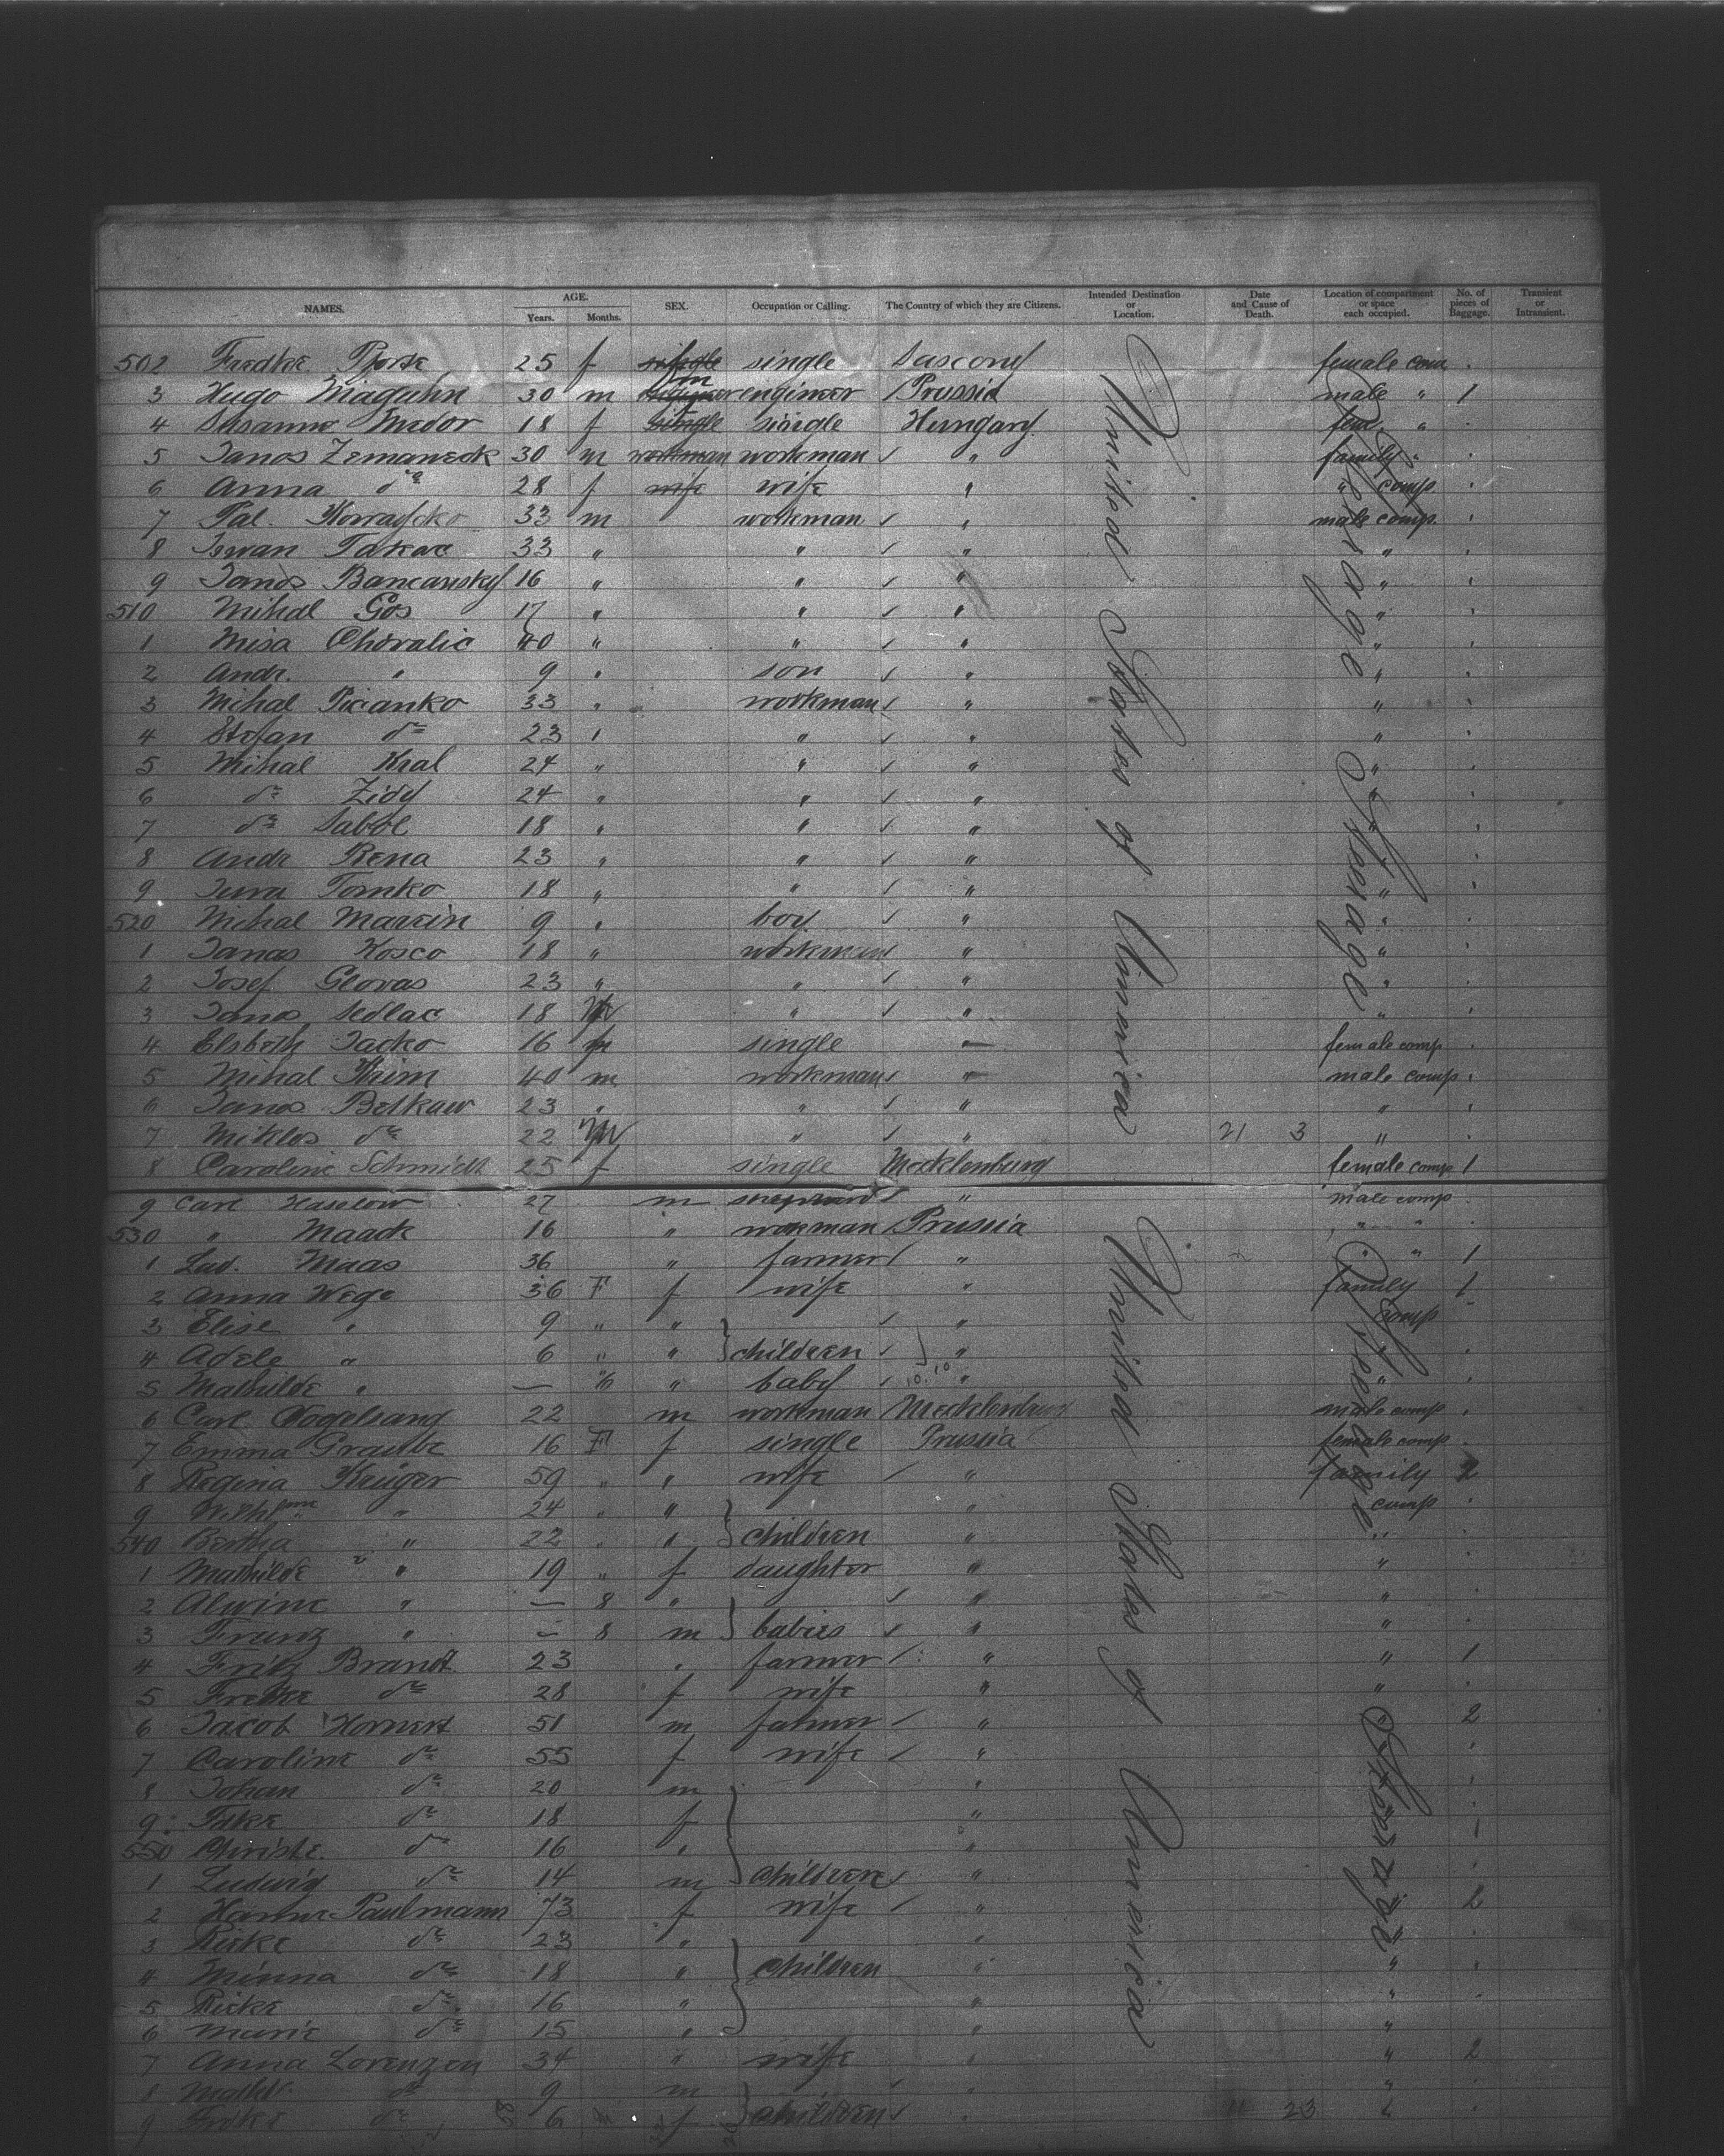 NAMES. AGE. Years. Months. SEX. Occupation or Calling. The Country of which they are Citizens. Intended Destination or Location. Date and Cause of Death. Location of compartment or space each occupied. No. of pieces of Baggage. Transient or Intransient.
502 25 f single single female com
3 Hugo Maguhn 30 m engineer Prussia male " 1
4 18 f single single Hungary. fem. "
5 Janos Zemaneck 30 m workman workman " family "
6 Anna do 28 f wife wife " " comp
7 Pal. 33 m workman " male comp.
8 Iswan Takac 33 " " " "
9 Janos Bancansky 16 " " " "
510 Mihal Gos 17 " " " "
1 Misa Choralic 40 " " " "
2 Andr. " 9 " son " "
3 Mihal Picanko 33 " workman " "
4 Stefan do 23 " " " "
5 Mihal Kral 24 " " " "
6 do Zidy 24 " " " "
7 do Sabol 18 " " " "
8 Andr Rena 23 " " " "
9 Jura Tomko 18 " " " "
520 Mihal Marcin 9 " boy " "
1 Janos Kosco 18 " workman " "
2 Josef Glovas 23 " " " "
3 Janos Sedlac 18 " " "
4 Jacko 16 single " female comp
5 Mihal Krim 40 m workman " male comp
6 Janos 23 " " " "
7 Miklos do 22 " " 21 3 "
8 Caroline Schmidt 25 f single Mecklenburg female comp 1
9 Carl Haselow 27 m " male comp
530 " Maack 16 " workman Prussia " "
1 Lud. Maas 36 " farmer " " " 1
2 Anna Wege 36 F f wife " family 1
3 Elise " 9 " " " comp
4 Adele " 6 " " children "
5 Mathilde " — " baby 10.10 " "
6 Carl Vogelsang 22 m workman Mecklenburg male comp
7 Emma Graube 16 F f single Prussia female comp
8 Regina Krüger 59 " " wife " family 2
9 " 24 " " " comp
540 Bertha " 22 " " children " "
1 Mathilde " 19 " f daughter " "
2 Alwine " — 8 " " "
3 Franz " — 8 m babies " "
4 Fritz Brandt 23 " farmer " " 1
5 do 28 f wife " "
6 Jacob 51 m farmer " " 2
7 Caroline do 55 f wife "
8 Johan do 20 m "
9 do 18 f "
550 Christe. do 16 " "
1 Ludwig do 14 m children "
2 Paulmann 73 f wife " 2
3 Rieke do 23 " "
4 Minna do 18 " children " "
5 Rieke do 16 " " "
6 Marie do 15 " " "
7 Anna Lorenzen 34 " wife " " 2
8 do 9 m " "
9 do 6 f children " 11 23 "
United States of America
Steerage
United States of America
Steerage